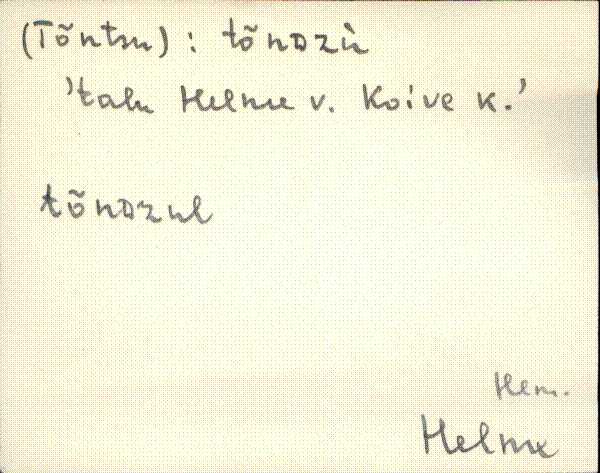 (Tõntsu) : tõnᴅzù
'talu Helme v. Koive k.'
tõnᴅzul
Hem.
Helme